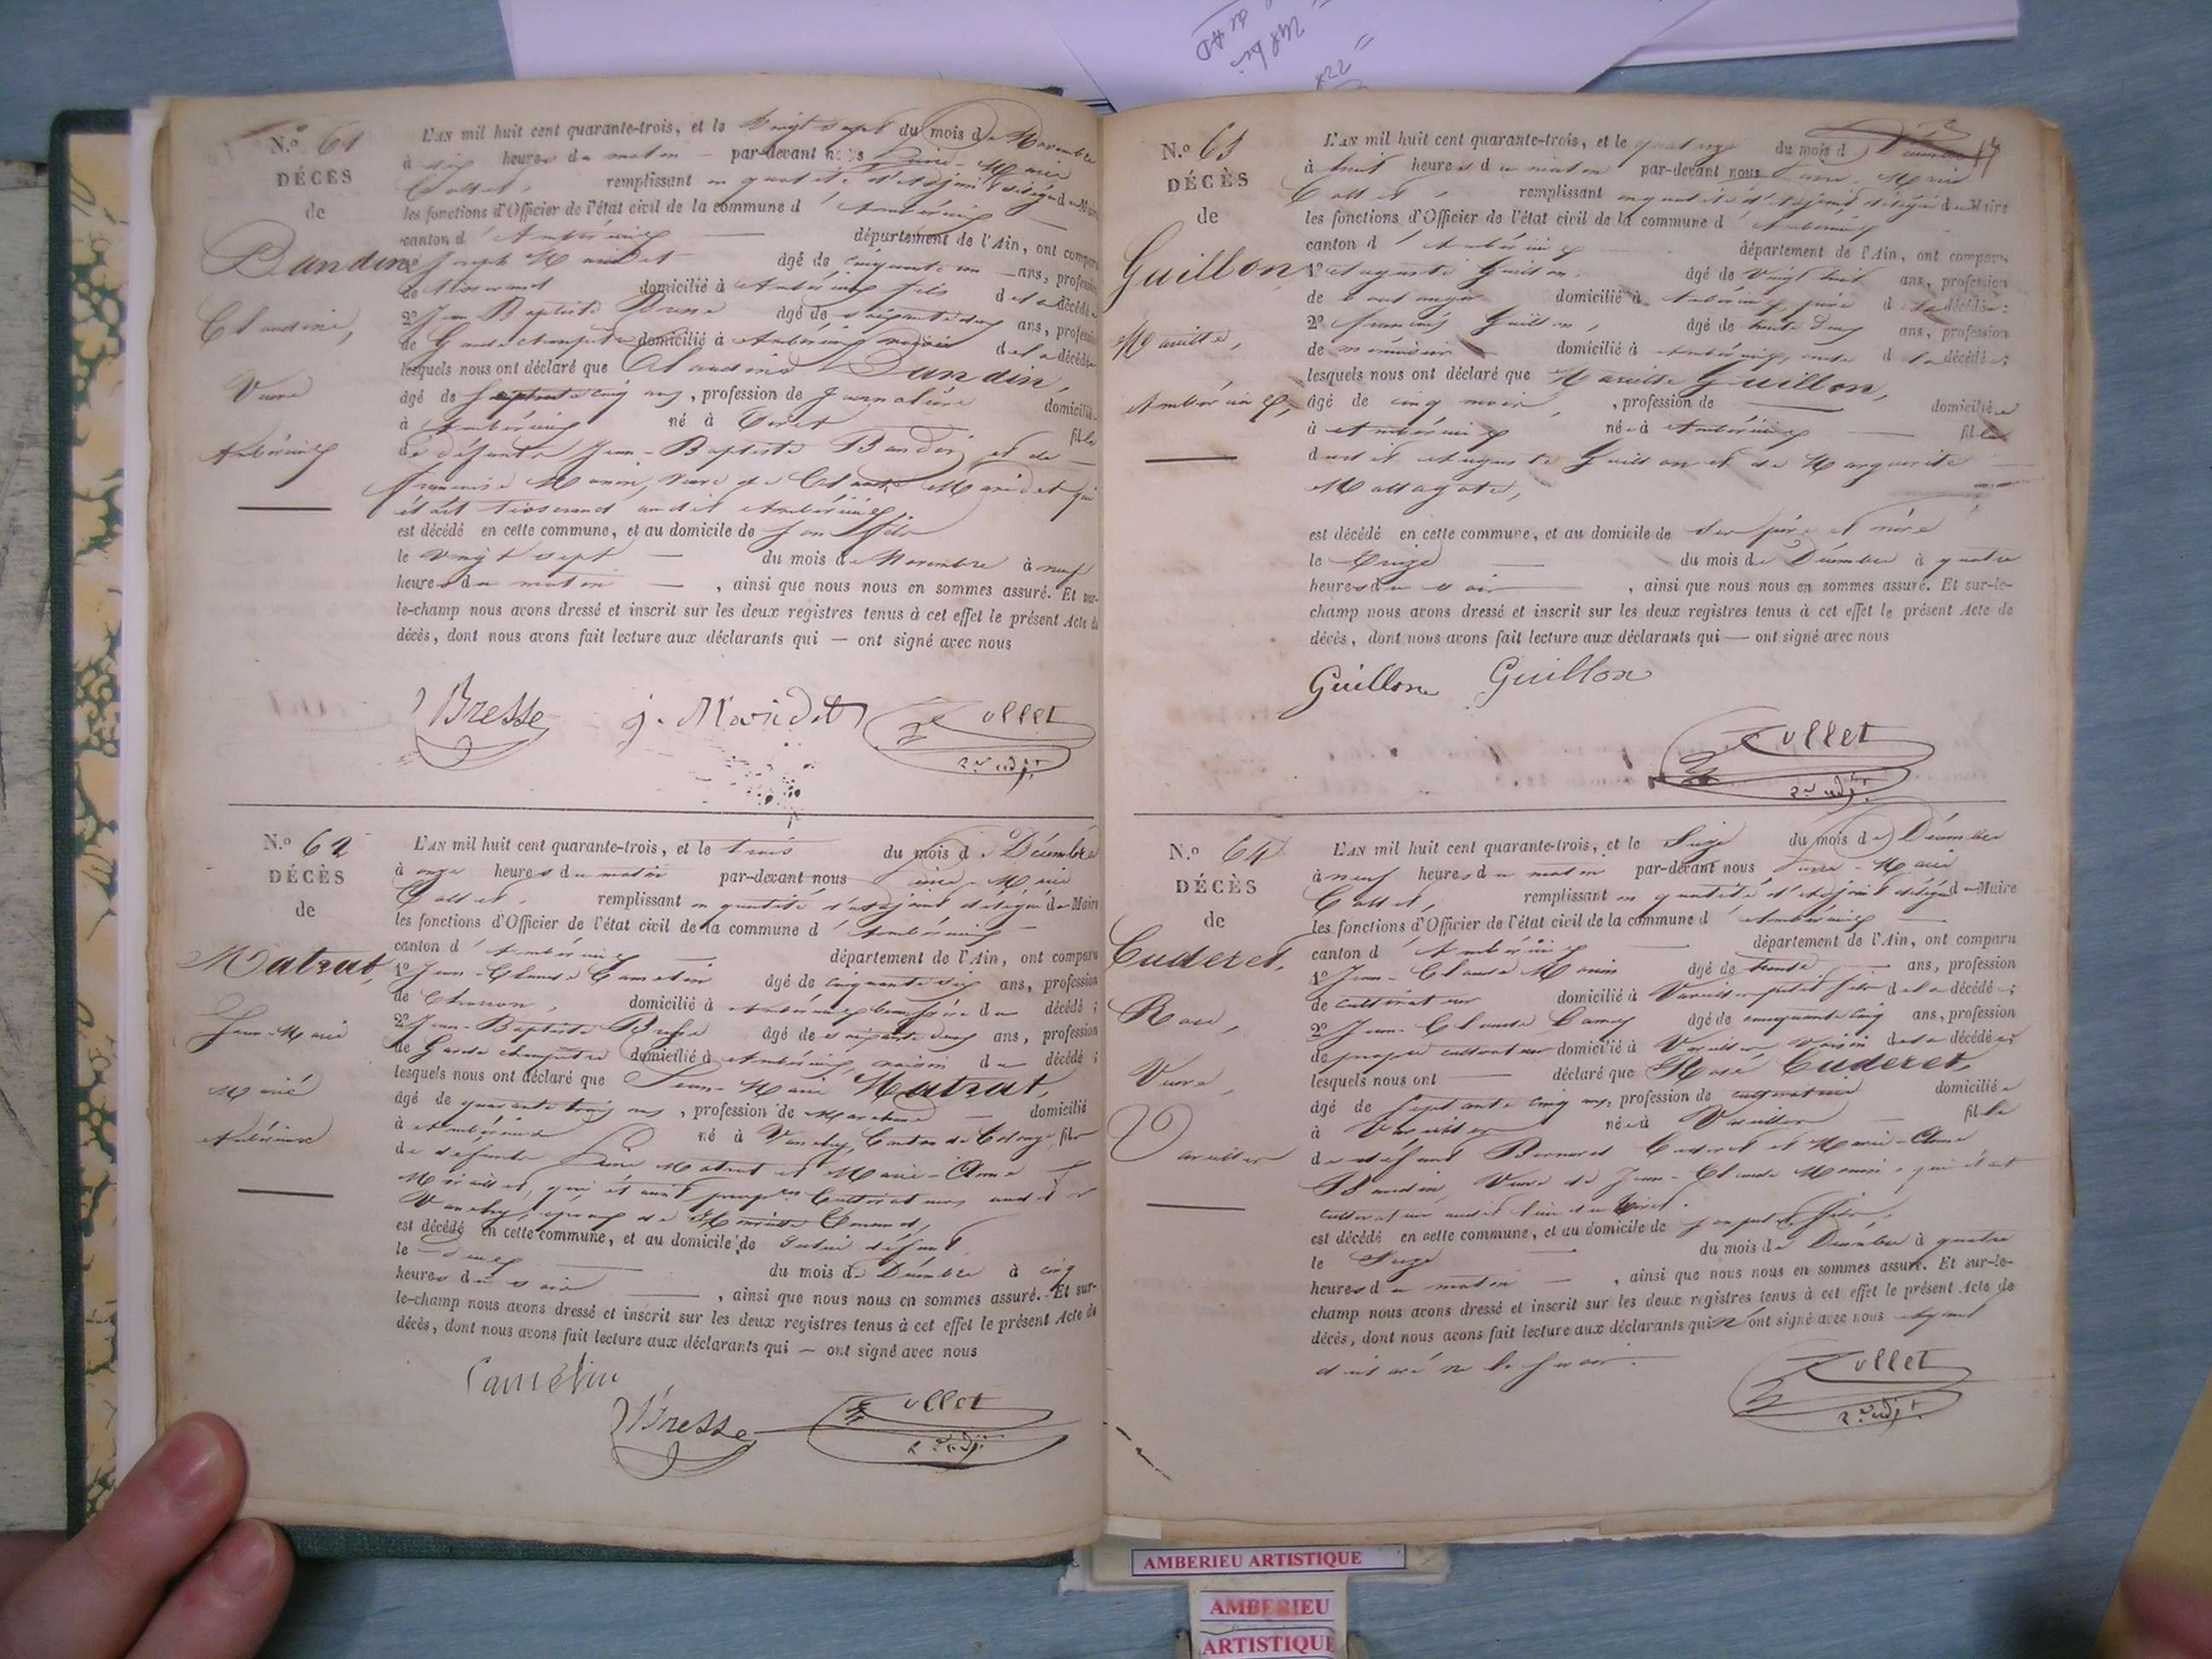 N.º 61
DÉCÈS
de
Bandin
Claudine,
Veuve
Ambérieux
L'AN mil huit cent quarante-trois, et le vingt sept du mois de Novembre
à dix heures du matin — par-devant nous Marie
Collet, remplissant en qualité d'adjoint délégué du Maire
les fonctions d'Officier de l'état civil de la commune d'Ambérieux
canton d'Ambérieux département de l'Ain, ont comparu
1º Joseph Maridet âgé de cinquante un ans, profession
de tisserand domicilié à Ambérieux fils de la décédée
2º Jean Baptiste Bresse âgé de soixante deux ans, profession
de Garde champêtre domicilié à Ambérieux voisin de la décédée
lesquels nous ont déclaré que Claudine Bandin,
âgé de septante cinq ans, profession de Journalière domiciliée
à Ambérieux né à fille
de défunts Jean-Baptiste Bandin et de
Françoise Monin, veuve de Claude Maridet qui
était tisserand audit Ambérieux,
est décédé en cette commune, et au domicile de son fils
le vingt sept — du mois de Novembre à neuf
heures du matin —, ainsi que nous nous en sommes assuré. Et sur-
le-champ nous avons dressé et inscrit sur les deux registres tenus à cet effet le présent Acte de
décès, dont nous avons fait lecture aux déclarants qui — ont signé avec nous
Bresse j. Maridet Collet
2e adjt
N.º 62
DÉCÈS
de
Matrat,
Jean-Marie
Marié
Ambérieux
L'AN mil huit cent quarante-trois, et le trois du mois de Décembre
à onze heures du matin par-devant nous Marie
Collet, remplissant en qualité d'adjoint délégué du Maire
les fonctions d'Officier de l'état civil de la commune d'Ambérieux —
canton d'Ambérieux — département de l'Ain, ont comparu
1º Jean-Claude Camelin âgé de cinquante six ans, profession
de Charron, domicilié à Ambérieux beau frère du décédé;
2º Jean-Baptiste Bresse âgé de soixante deux ans, profession
de Garde champêtre domicilié à Ambérieux, voisin du décédé;
lesquels nous ont déclaré que Jean-Marie Matrat,
âgé de quarante trois ans, profession de Marchand — domicilié
à Ambérieux né à Canton de Collonge, fils
de défunts Matrat et Marie-Anne
qui étaient propres Cultivateurs audit
est décédé en cette commune, et au domicile de dudit défunt
le deux du mois de Décembre à cinq
heures du soir —, ainsi que nous nous en sommes assuré. Et sur-
le-champ nous avons dressé et inscrit sur les deux registres tenus à cet effet le présent Acte de
décès, dont nous avons fait lecture aux déclarants qui — ont signé avec nous
Camelin
Bresse Collet
2e adjt
N.º 63
DÉCÈS
de
Guillon
Mariette,
Ambérieux,
L'AN mil huit cent quarante-trois, et le quatorze du mois d Décembre
à huit heures du matin par-devant nous Marie
Collet, remplissant en qualité d'adjoint délégué du Maire
les fonctions d'Officier de l'état civil de la commune d'Ambérieux
canton d'Ambérieux département de l'Ain, ont comparu
1º Auguste Guillon, âgé de vingt huit ans, profession
de boulanger domicilié à Ambérieux, père de la décédée;
2º François Guillon, âgé de trente deux ans, profession
de menuisier domicilié à Ambérieux, oncle de la décédée;
lesquels nous ont déclaré que Mariette Guillon,
âgé de cinq mois, , profession de — domiciliée
à Ambérieux née à Ambérieux — fille
dudit Auguste Guillon et de Marguerite
est décédé en cette commune, et au domicile de ses père et mère
le Treize — du mois de Décembre à quatre
heures du soir —, ainsi que nous nous en sommes assuré. Et sur-le-
champ nous avons dressé et inscrit sur les deux registres tenus à cet effet le présent Acte de
décès, dont nous avons fait lecture aux déclarants qui — ont signé avec nous
Guillon Guillon
Collet
2e adjt.
N.º 64
DÉCÈS
de
Cuderet,
Rose,
Veuve,
Vareilles
L'AN mil huit cent quarante-trois, et le Seize du mois de Décembre
à neuf heures du matin par-devant nous Marie
Collet, remplissant en qualité d'adjoint délégué du Maire
les fonctions d'Officier de l'état civil de la commune d'Ambérieux —
canton d'Ambérieux — département de l'Ain, ont comparu
1º Jean-Claude Monin âgé de trente — ans, profession
de cultivateur domicilié à Vareilles petit fils de la décédée;
2º Jean-Claude âgé de cinquante cinq ans, profession
de propre cultivateur domicilié à Vareilles voisin de la décédée;
lesquels nous ont — déclaré que Rose Cuderet,
âgé de septante cinq ans, profession de cultivatrice domiciliée
à Vareilles née à Vareilles fille
de défunt Bernard Cuderet et Marie-Anne
Bandin, Veuve de Jean-Claude Monin qui était
cultivateur audit lieu
est décédé en cette commune, et au domicile de son petit fils,
le Seize — du mois de Décembre à quatre
heures du matin —, ainsi que nous nous en sommes assuré. Et sur-le-
champ nous avons dressé et inscrit sur les deux registres tenus à cet effet le présent Acte de
décès, dont nous avons fait lecture aux déclarants qui n'ont signé avec nous ayant
déclaré ne le savoir.
Collet
2e adjt.
AMBERIEU ARTISTIQUE
AMBERIEU
ARTISTIQUE